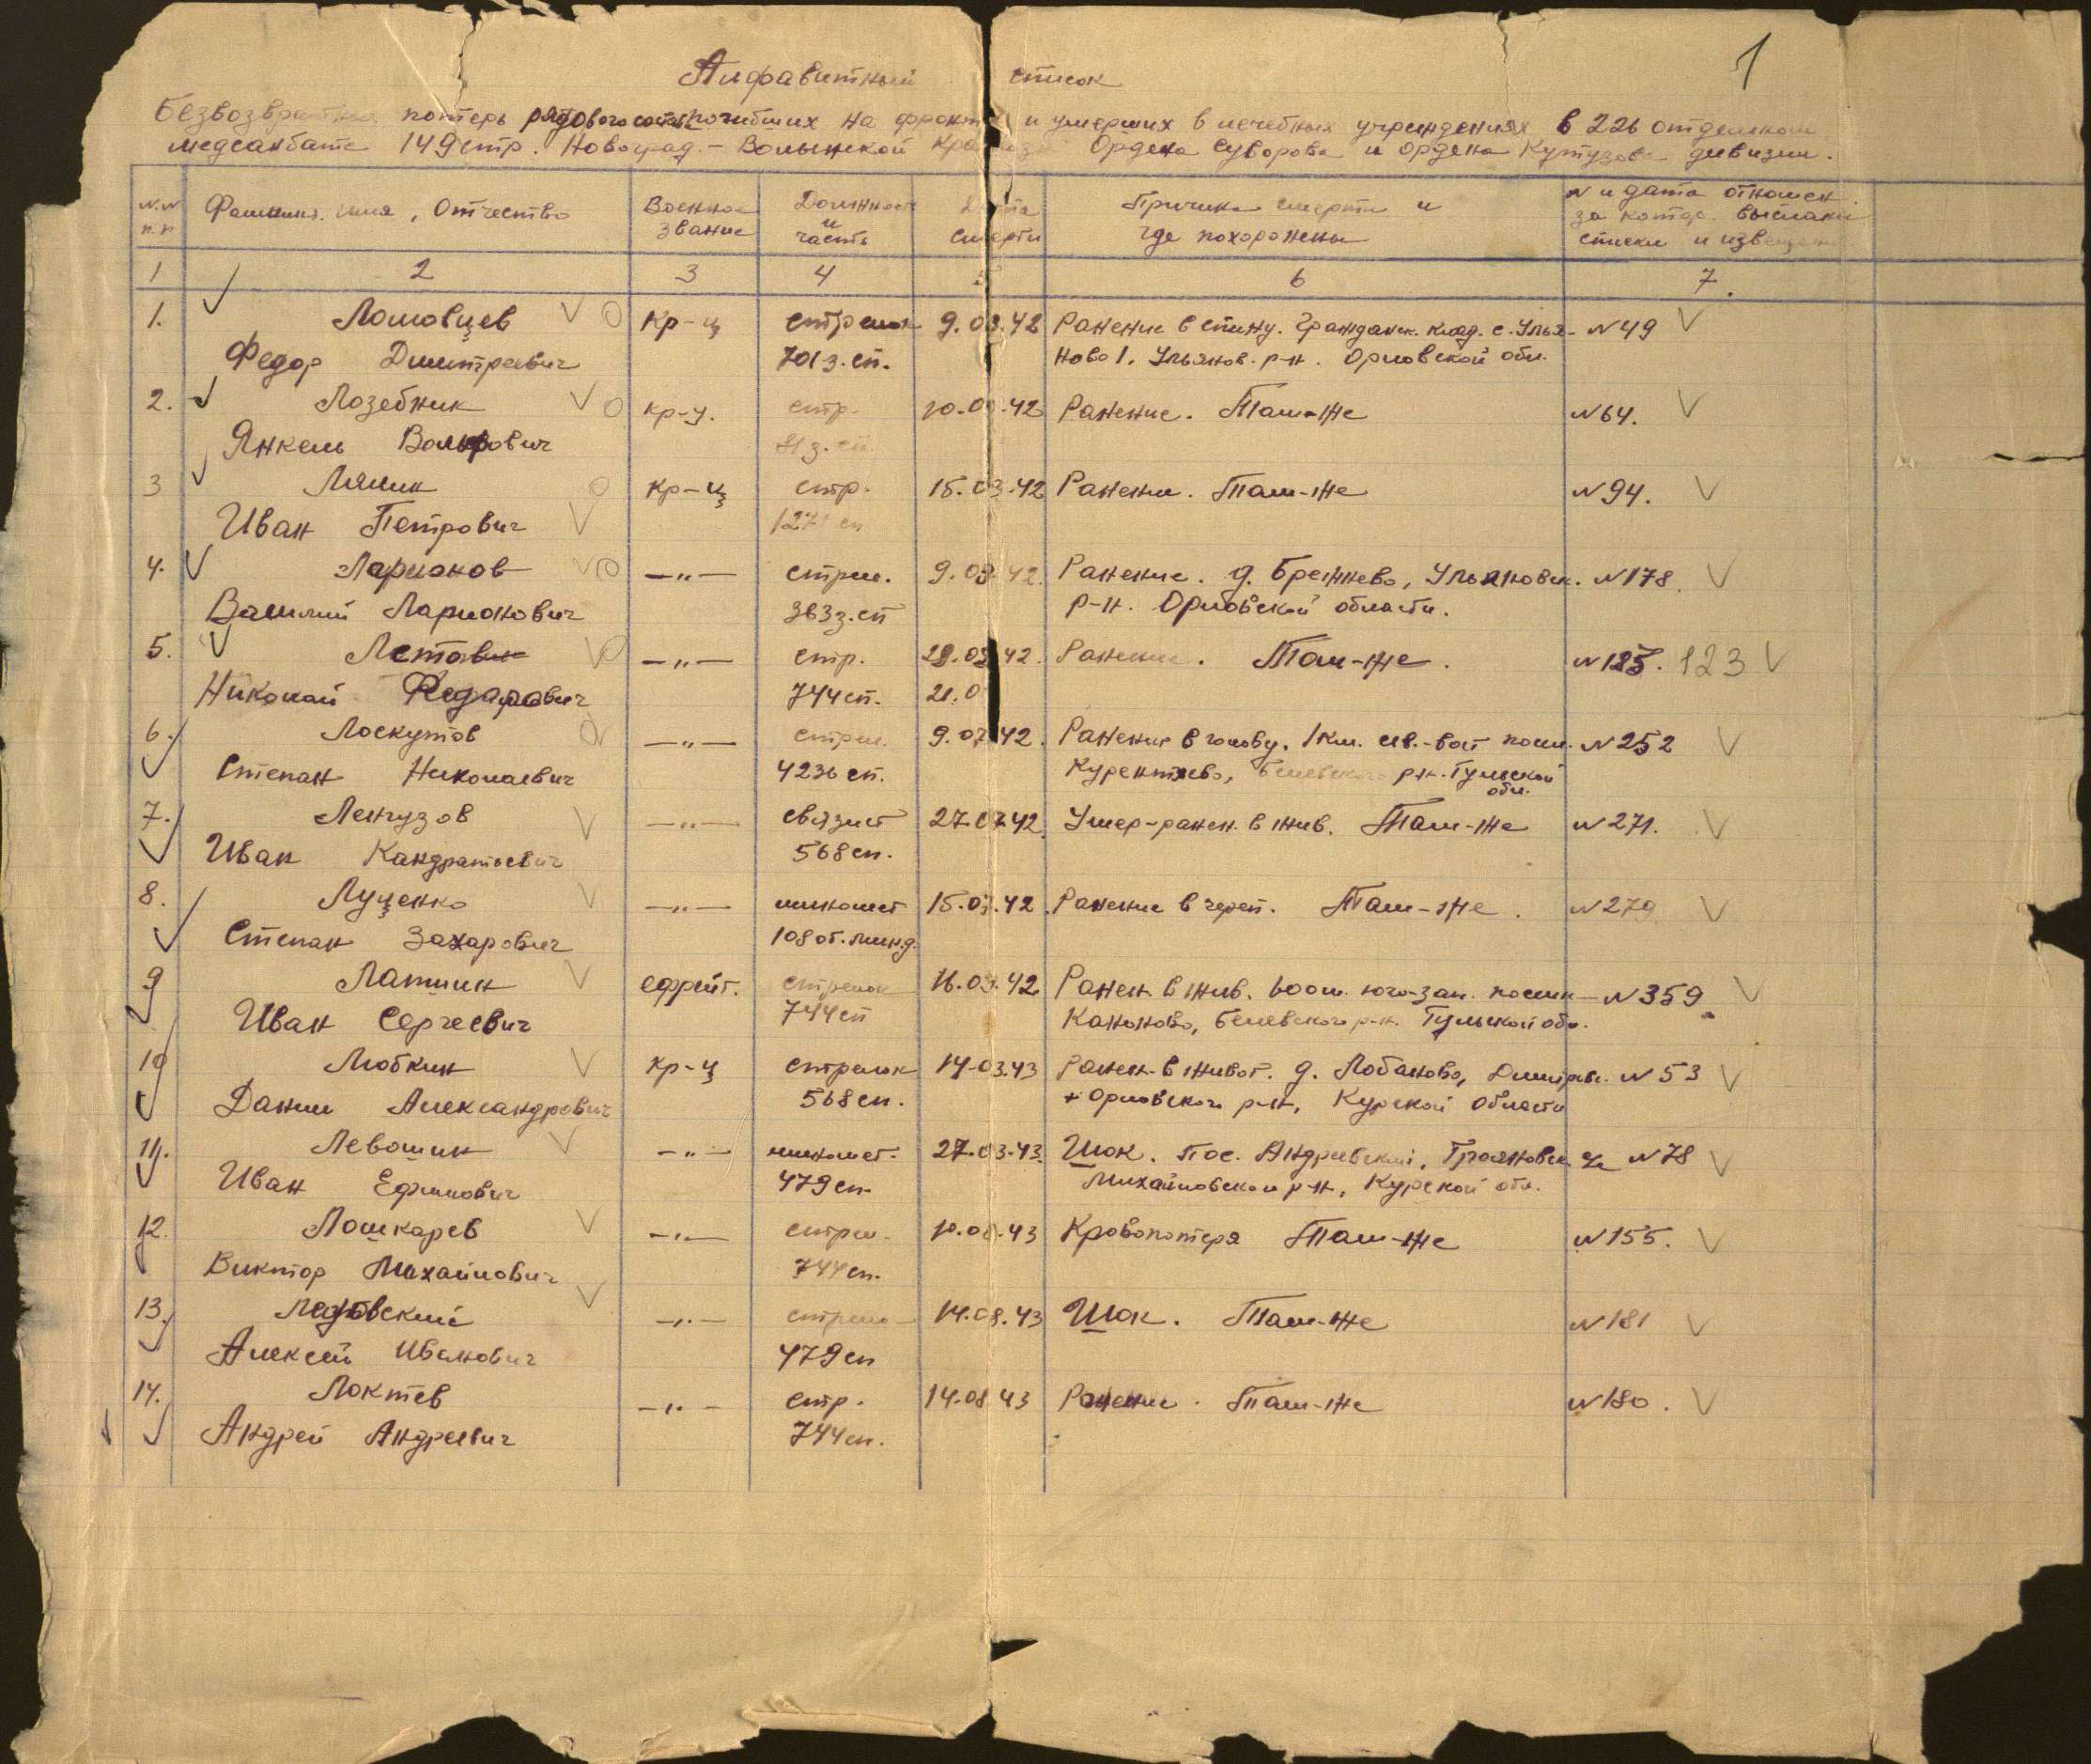 1
Алфавитный список
Безвозвратных потерь рядового состава погибших на фронте и умерших в лечебных учреждениях в 226 отдельном
медсанбате 149 стр. Новоград-Волынской Ордена Суворова и Ордена Кутузова дивизии.
N.N п.п Фамилия, имя, Отчество Военное звание Должность и часть Дата смерти Причина смерти и где похоронены N и дата отношен. за котор. высланы списки и извещен
1 2 3 4 5 6 7.
1. Ломовцев Кр-ц стрелок 9.03.42 Ранение в спину. Гражданск. клад. с. Улья- N 49
Федор Дмитреевич 701 з.сп. ново 1. Ульянов. р-н. Орловской обл.
2. Лозебник кр-ц. стр. 10.03.42 Ранение. Там-же N 64.
Янкель Вольфович з.сп.
3 Лялик кр-ц стр. 15.03.42 Ранение. Там-же N 94.
Иван Петрович 1271 сп
4. Ларионов —„— стрел. 9.03.42. Ранение. д. Брежнево, Ульяновск. N 178
Василий Ларионович 363 з.сп р-н. Орловской области.
5. —„— стр. 03.42. Ранение. Там-же. N 123. 123
Николай Федорович 744 сп. 21.0
6. Лоскутов —„— стрел. 9.07.42. Ранение в голову. 1 км. св.-вост посел. N 252
Степан Николаевич 4236 сп. Белевского р-н. Тульской
обл.
7. Ленгузов —„— связист 27.07.42. Умер-ранен. в жив. Там-же N 271.
Иван Кандратьевич 568 сп.
8. Луценко —„— миномет 15.03.42. Ранение в череп. Там-же. N 279
Степан Захарович 108 от. мин.д.
9 Лапшин ефрейт. стрелок 16.03.42 Ранен. в жив. 600 м. юго-зап. посел- N 359
Иван Сергеевич 744 сп Кононово, Белевского р-н. Тульской обл.
10 Любкин кр-ц стрелок 14.03.43 Ранен. в живот. д. Лобаново, Дмитров. N 53
Данил Александрович 568 сп. + Орловского р-н, Курской области
11. Левошин —„— миномет. 27.03.43. Шок. Пос. Андреевский, Трояновск N 78
Иван Ефимович 479 сп. Михайловского р-н, Курской обл.
12. Лошкарев —„— стрел. 10.08.43 Кровопотеря Там-же N 155.
Виктор Михайлович 744 сп.
13. Лазовский —„— 14.08.43 Шок. Там-же N 181
Алексей Иванович 479 сп
14. Локтев —„— стр. 14.08.43 Ранение. Там-же N 180.
Андрей Андреевич 744 сп.